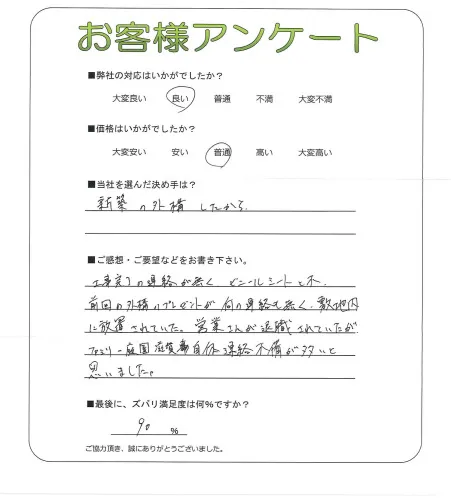 お客様アンケート
■弊社の対応はいかがでしたか？
大変良い 良い 普通 不満 大変不満
■価格はいかがでしたか？
大変安い 安い 普通 高い 大変高い
■当社を選んだ決め手は？
新築の外構したから
■ご感想・ご要望などをお書き下さい。
工事完了の連絡が無く、ビニールシートと木、
前回の外構のプレゼントが何の連絡も無く、敷地内
に放置されていた。営業さんが退職されていたが
ファミリー庭園滋賀 自体連絡不備が多いと
思いました。
■最後に、ズバリ満足度は何%ですか？
90 %
ご協力頂き、誠にありがとうございました。